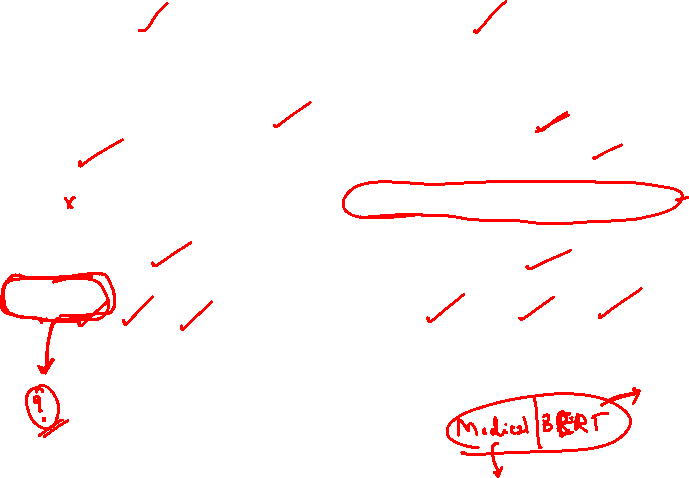 x
?
Medical | BERT